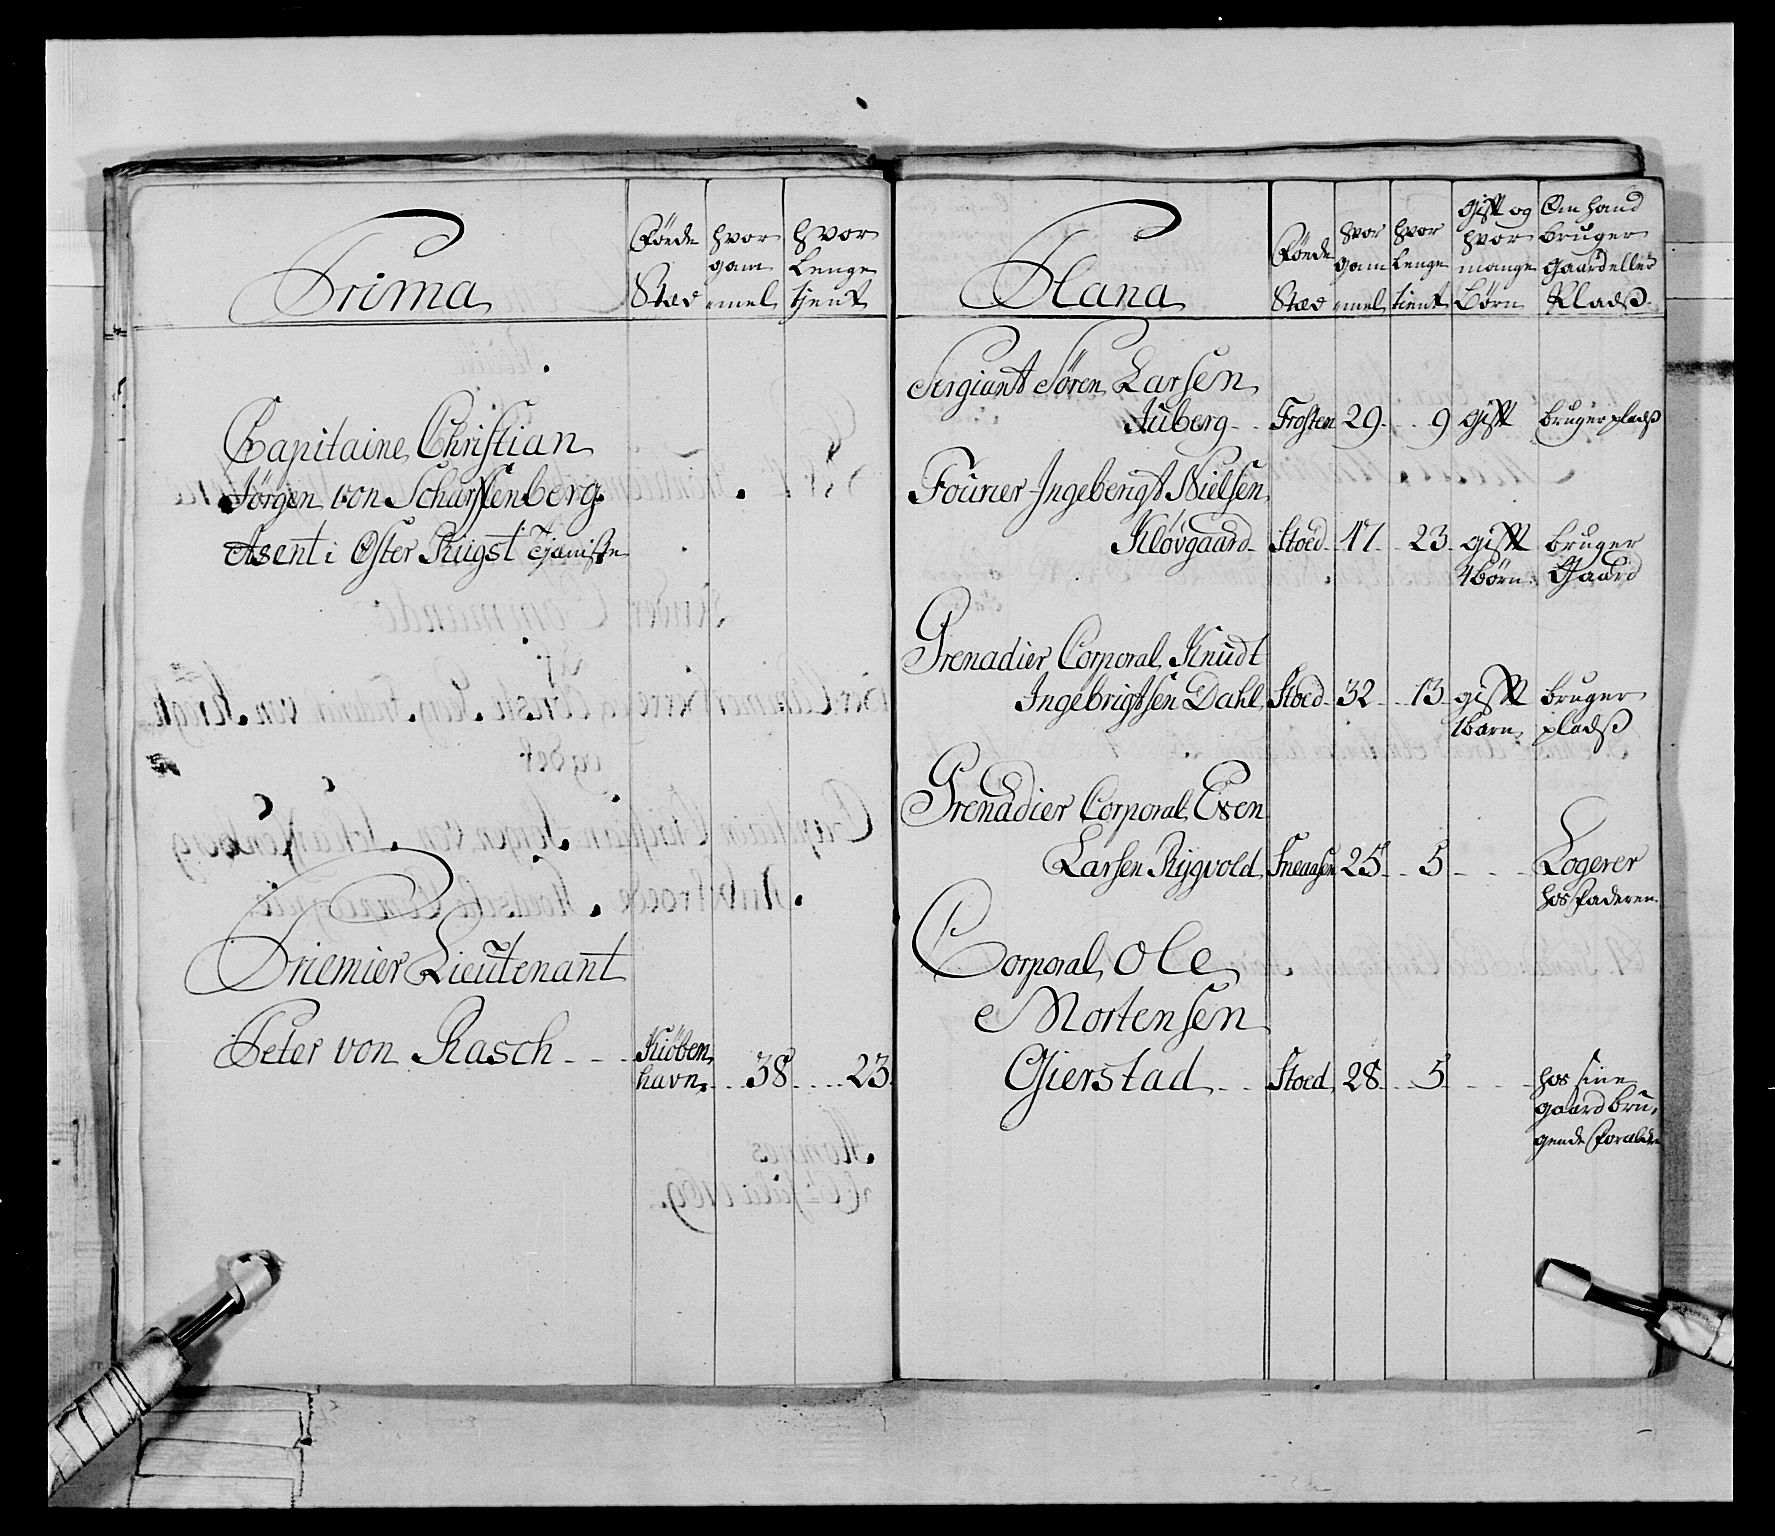 Prima
Føede Stæd
hvor gammel
hvor Lenge tient
Capitaine Christian
Jørgen von Scharffenberg
Asent i Øster Riigst Tjeniste
Priemier Lieutenant
Peter von Rasch - - - Kiøben
havn. . . 38 . . . . 23.
Plana
Føede Stæd
hvor gammel
hvor Lenge tient
gift og hvor mange Børn
Om hand bruger gaard eller Pladß.
Sergiant Søren Larsen
Auberg - - Frosten 29. . . 9 gift bruger pladß
Fourier Ingebrigt Nielsen
Kløvgaard - Stoed - 47 . . 23 gifft bruger
4 børn. Gaard
Grenadier Corporal Knudt
Ingebrigtsen Dahl Stoed 32 . . 13 gifft bruger
1 barn pladß
Grenadier Corporal Even
Larsen Rygvold Sneaasen 25 . . 5 - - - - Logerer
hos Faderen
Corporal Ole
Mortensen
Gierstad - - Stoed 28 - - 5 - - - - hos sine
gaard bru,
gende Forældre